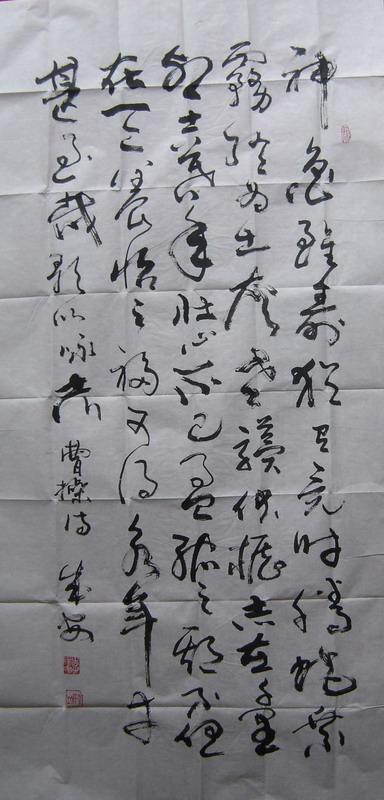 神龜雖壽猶有竟時騰蛇乘
霧終為土灰老驥伏櫪志在千里
烈士暮年壯心不已盈縮之期不但
在天養怡之福可得永年幸
甚至哉歌以咏志 曹操詩